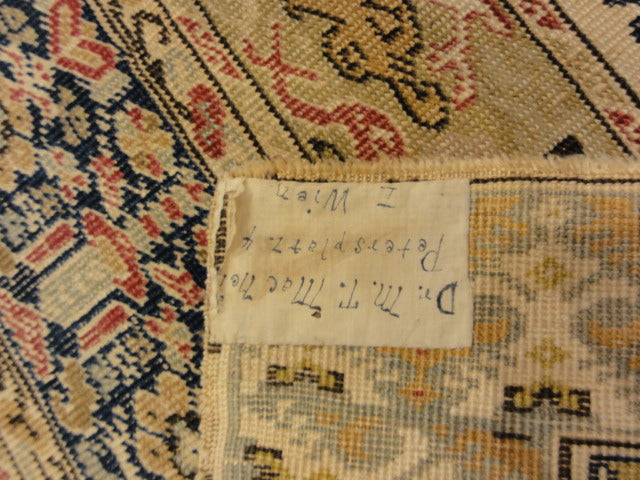 Dr. M. T. Mac
Petersplatz 4
I Wien